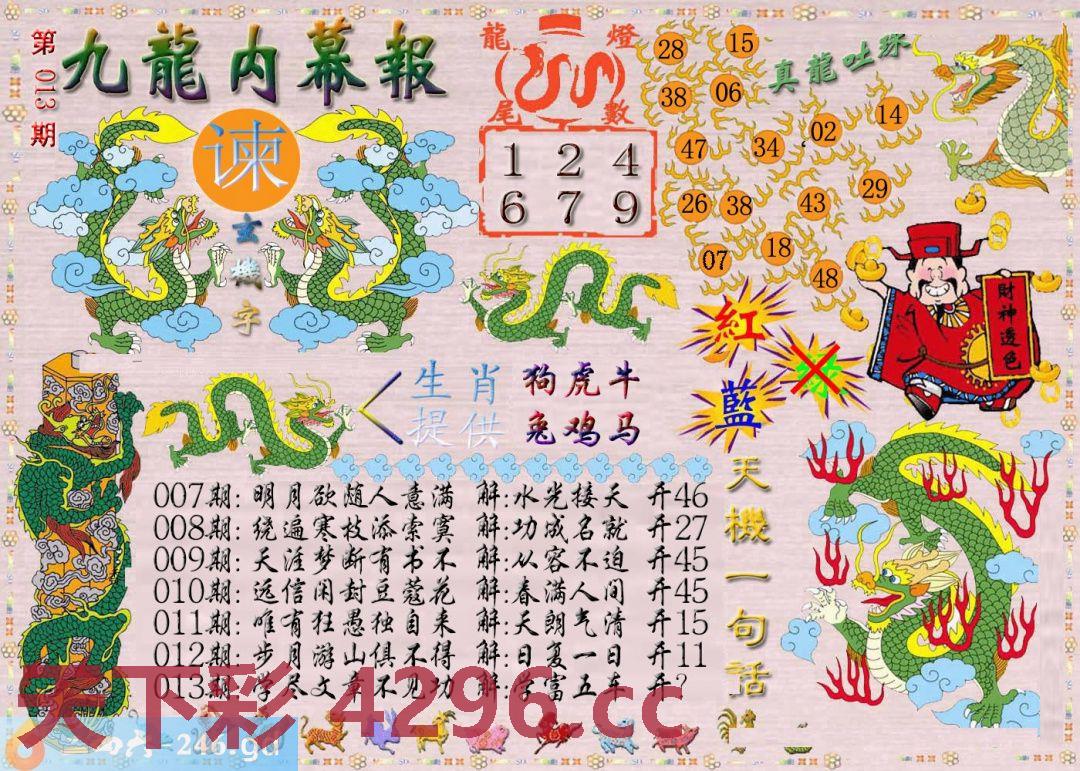 第013期
九龍内幕報
谏
玄機字
龍尾燈數
1 2 4
6 7 9
真龍吐珠
28 15
38 06
47 34 02 14
26 38 43 29
07 18 48
紅
藍
財神透色
生肖提供
狗虎牛
兔鸡马
天機一句话
007期: 明月欲随人意满 解:水光接天 开46
008期: 绕遍寒枝添索寞 解:功成名就 开27
009期: 天涯梦断有书不 解:从容不迫 开45
010期: 远信闲封豆蔻花 解:春满人间 开45
011期: 唯有狂愚独自来 解:天朗气清 开15
012期: 步月游山俱不得 解:日复一日 开11
013期: 学尽文章不见功 解:学富五车 开?
天下彩 4296.cc
246.gd